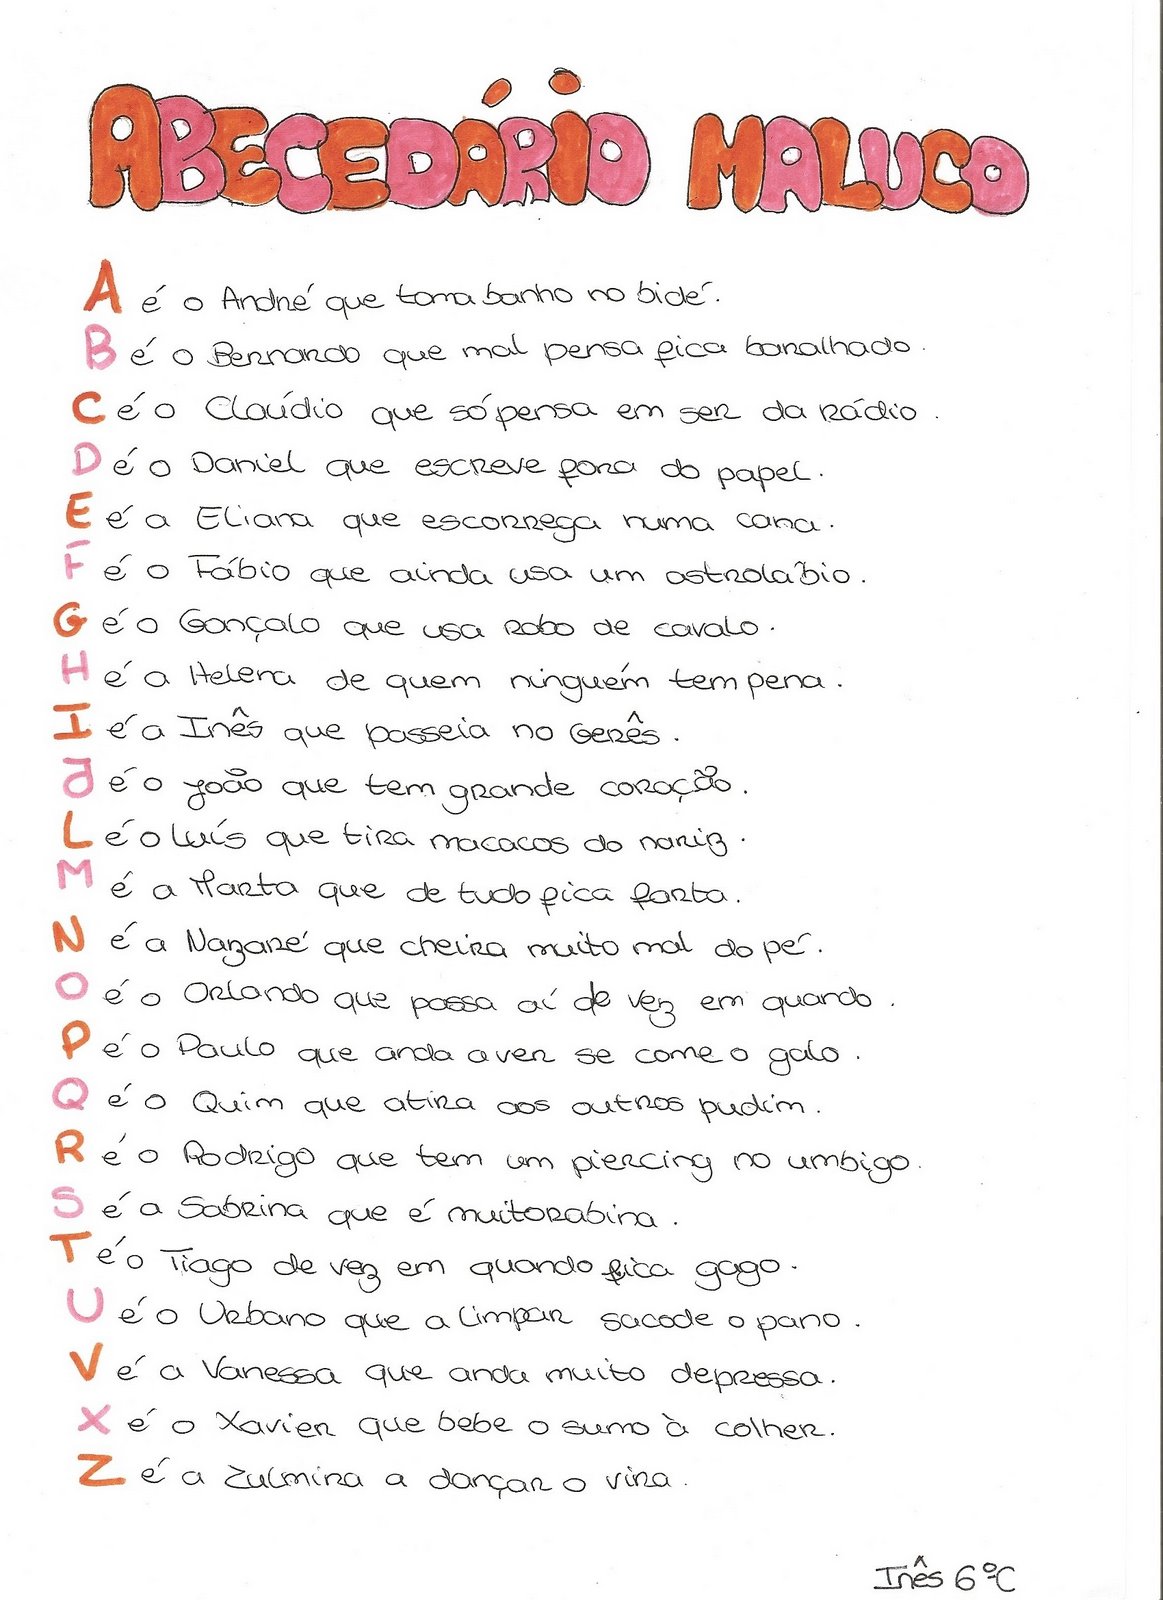 ABECEDÁRIO MALUCO
A é o André que toma banho no bidé.
B é o Bernardo que mal pensa fica baralhado.
C é o Claúdio que só pensa em ser da rádio.
D é o Daniel que escreve fora do papel.
E é a Eliana que escorrega numa cana.
F é o Fábio que ainda usa um astrolábio.
G é o Gonçalo que usa rabo de cavalo.
H é a Helena de quem ninguém tem pena.
I é a Inês que passeia no Gerês.
J é o João que tem grande coração.
L é o Luís que tira macacos do nariz.
M é a Marta que de tudo fica farta.
N é a Nazaré que cheira muito mal do pé.
O é o Orlando que passa aí de vez em quando.
P é o Paulo que anda a ver se come o galo.
Q é o Quim que atira aos outros pudim.
R é o Rodrigo que tem um piercing no umbigo.
S é a Sabrina que é muito rabina.
T é o Tiago de vez em quando fica gago.
U é o Urbano que a limpar sacode o pano.
V é a Vanessa que anda muito depressa.
X é o Xavier que bebe o sumo à colher.
Z é a Zulmira a dançar o vira.
Inês 6ºC